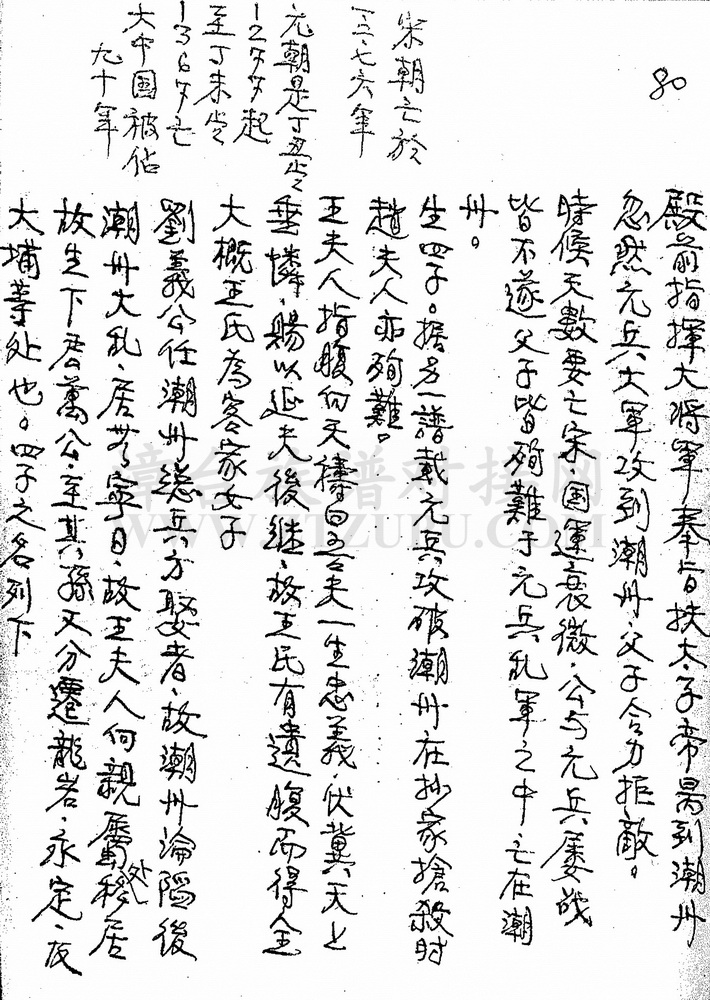 80
殿前指揮大將軍奉旨扶太子帝昺到潮州
忽然元兵大軍攻到潮州·父子合力拒敵。
時候天數要亡宋·国運衰微·公与元兵屡战
皆不遂父子皆殉難于元兵乱軍之中亡在潮
州。
生四子。据另一譜載元兵攻破潮州在抄家搶殺时
趙夫人亦殉難。
王夫人指腹向天禱曰吾夫一生忠義·伏冀天上
垂憐·賜以延夫後継·故王氏有遺腹而得全
大概王氏為客家女子
劉義公任潮州总兵方娶者·故潮州淪陷後
潮州大乱·居無寧日·故王夫人向親屬处移居
故生下君萬公·至其孫又分遷龍岩·永定·及
大埔等处也。四子之名列下
宋朝亡於
一二七六年
元朝是丁丑岁
1277起
至丁未岁
1367亡
大中国被佔
九十年
漳台族谱对接网
www.ztzupu.com